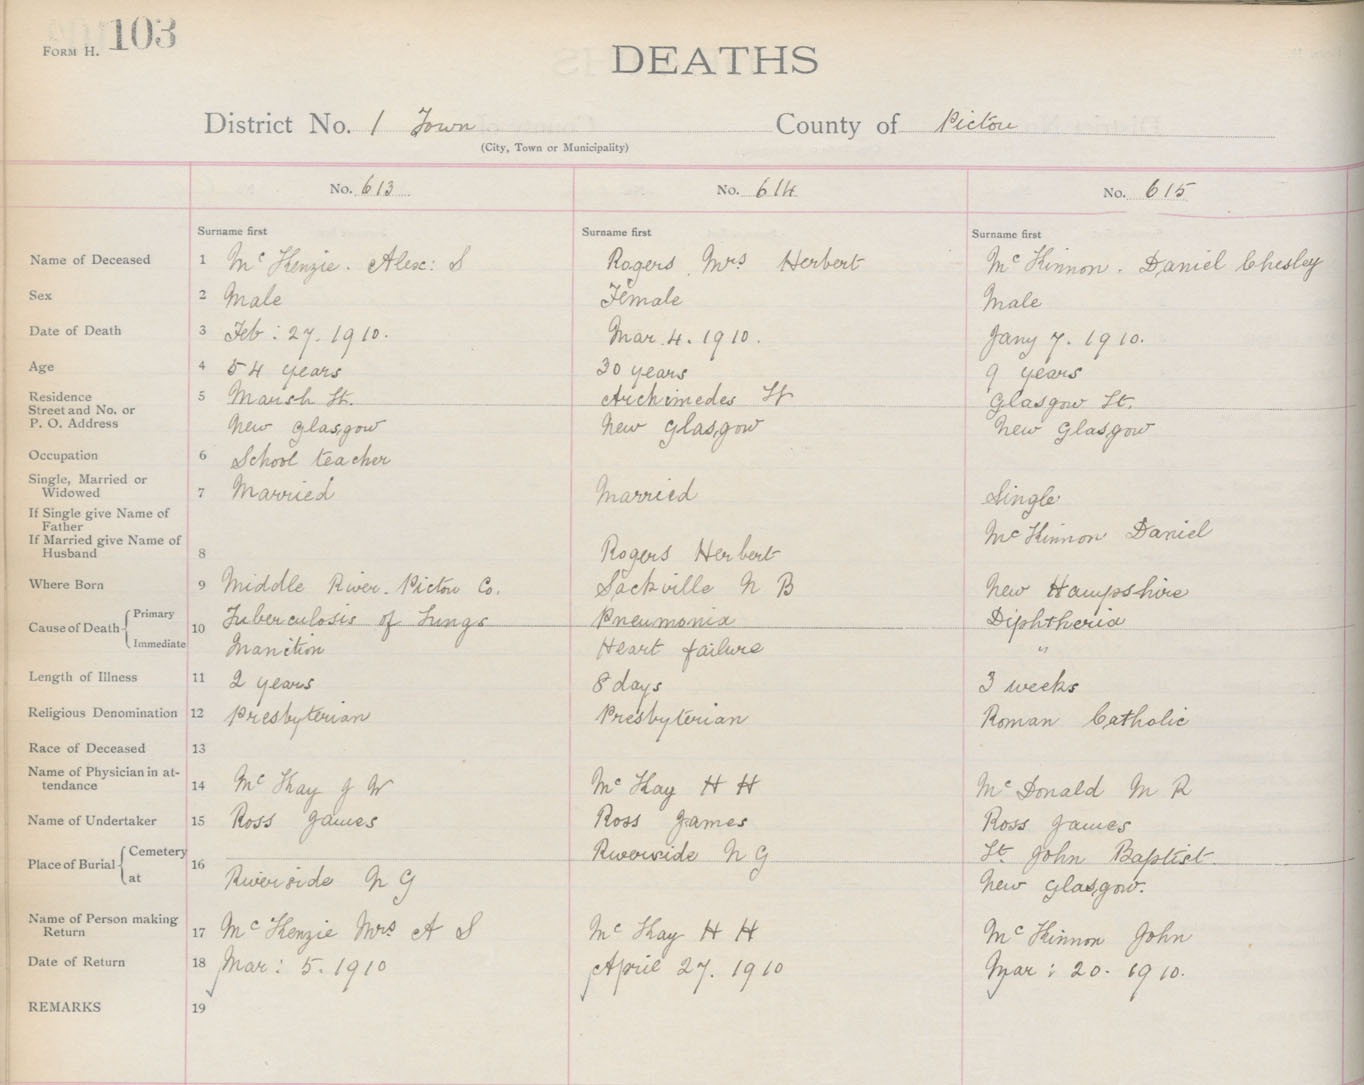 FORM H. 103
DEATHS
District No. 1 Town County of Pictou
(City, Town or Municipality)
No. 613 No. 614 No. 615
Surname first Surname first Surname first
Name of Deceased 1 Mc Kenzie. Alex: S Rogers. Mrs Herbert Mc Kinnon. Daniel Chesley
Sex 2 Male Female Male
Date of Death 3 Feb: 27. 1910. Mar. 4. 1910. Jany 7. 1910.
Age 4 54 years 30 years 9 years
Residence 5 Marsh St. Archimedes St Glasgow St.
Street and No. or
P. O. Address New Glasgow New Glasgow New Glasgow
Occupation 6 School teacher
Single, Married or
Widowed 7 Married Married Single
If Single give Name of
Father Mc Kinnon Daniel
If Married give Name of
Husband 8 Rogers Herbert
Where Born 9 Middle River. Pictou Co. Sackville N B New Hampshire
Cause of Death Primary 10 Tuberculosis of Lungs Pneumonia Diphtheria
Immediate Inanition Heart failure "
Length of Illness 11 2 years 8 days 3 weeks
Religious Denomination 12 Presbyterian Presbyterian Roman Catholic
Race of Deceased 13
Name of Physician in at-
tendance 14 Mc Kay J W Mc Kay H H Mc Donald M R
Name of Undertaker 15 Ross James Ross James Ross James
Place of Burial Cemetery 16 Riverside N G St. John Baptist.
at Riverside N G New Glasgow.
Name of Person making
Return 17 Mc Kenzie Mrs A S Mc Kay H H Mc Kinnon John
Date of Return 18 Mar: 5. 1910 April 27. 1910 Mar: 20. 1910.
REMARKS 19